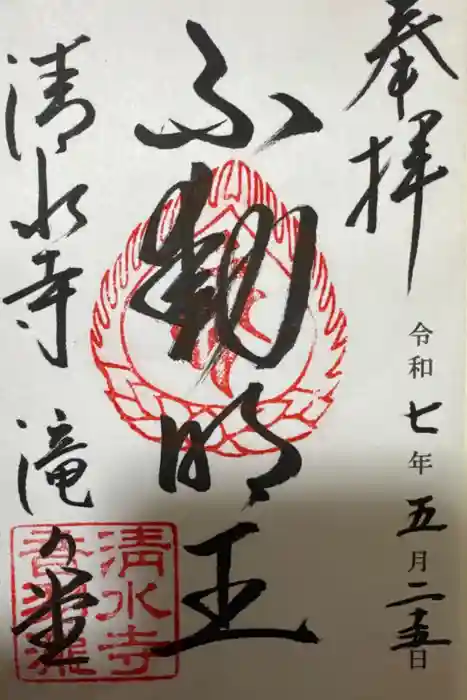 奉拝
令和七年五月二十五日
不動明王
清水寺 滝の堂
清水寺
音羽瀧